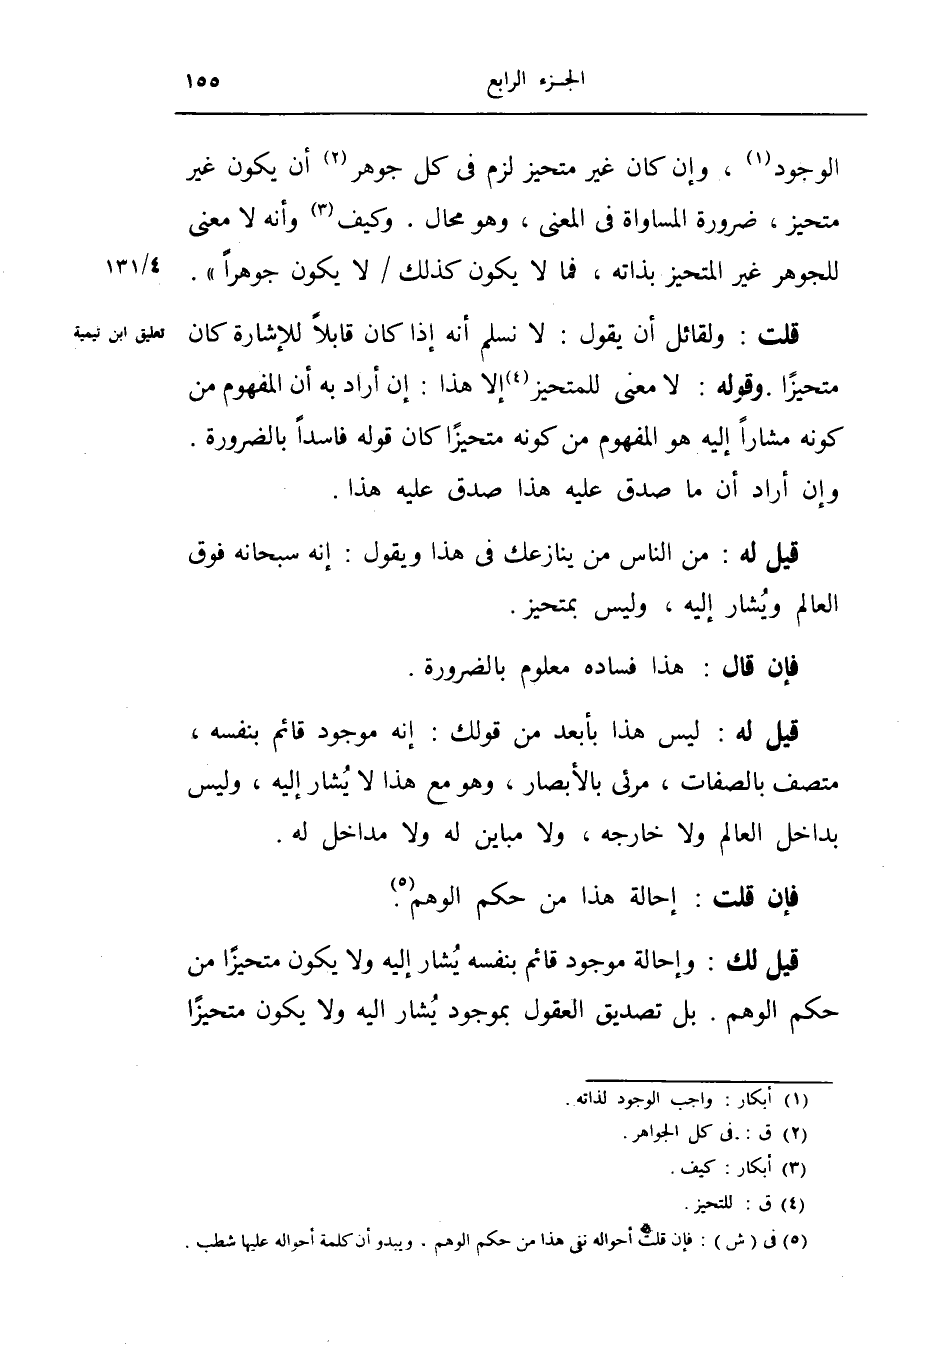 الجزء الرابع ١٥٥
الوجود(١) ، وإن كان غير متحيز لزم فى كل جوهر(٢) أن يكون غير
متحيز ، ضرورة المساواة فى المعنى ، وهو محال . وكيف(٣) وأنه لا معنى
للجوهر غير المتحيز بذاته ، فما لا يكون كذلك / لا يكون جوهراً » . ١٣١/٤
قلت : ولقائل أن يقول : لا نسلم أنه إذا كان قابلاً للإشارة كان تعليق ابن تيمية
متحيزًا .وقوله : لا معنى للمتحيز(٤)إلا هذا : إن أراد به أن المفهوم من
كونه مشاراً إليه هو المفهوم من كونه متحيزًا كان قوله فاسداً بالضرورة .
وإن أراد أن ما صدق عليه هذا صدق عليه هذا .
قيل له : من الناس من ينازعك فى هذا ويقول : إنه سبحانه فوق
العالم ويُشار إليه ، وليس بمتحيز .
فإن قال : هذا فساده معلوم بالضرورة .
قيل له : ليس هذا بأبعد من قولك : إنه موجود قائم بنفسه ،
متصف بالصفات ، مرئى بالأبصار ، وهو مع هذا لا يُشار إليه ، وليس
بداخل العالم ولا خارجه ، ولا مباين له ولا مداخل له .
فإن قلت : إحالة هذا من حكم الوهم(٥).
قيل لك : وإحالة موجود قائم بنفسه يُشار إليه ولا يكون متحيزًا من
حكم الوهم . بل تصديق العقول بموجود يُشار اليه ولا يكون متحيزًا
(١) أبكار : واجب الوجود لذاته .
(٢) ق : .فى كل الجواهر .
(٣) أبكار : كيف .
(٤) ق : للتحيز .
(٥) فى ( ش ) : فإن قلت أحواله نفى هذا من حكم الوهم . ويبدو أن كلمة أحواله عليها شطب .